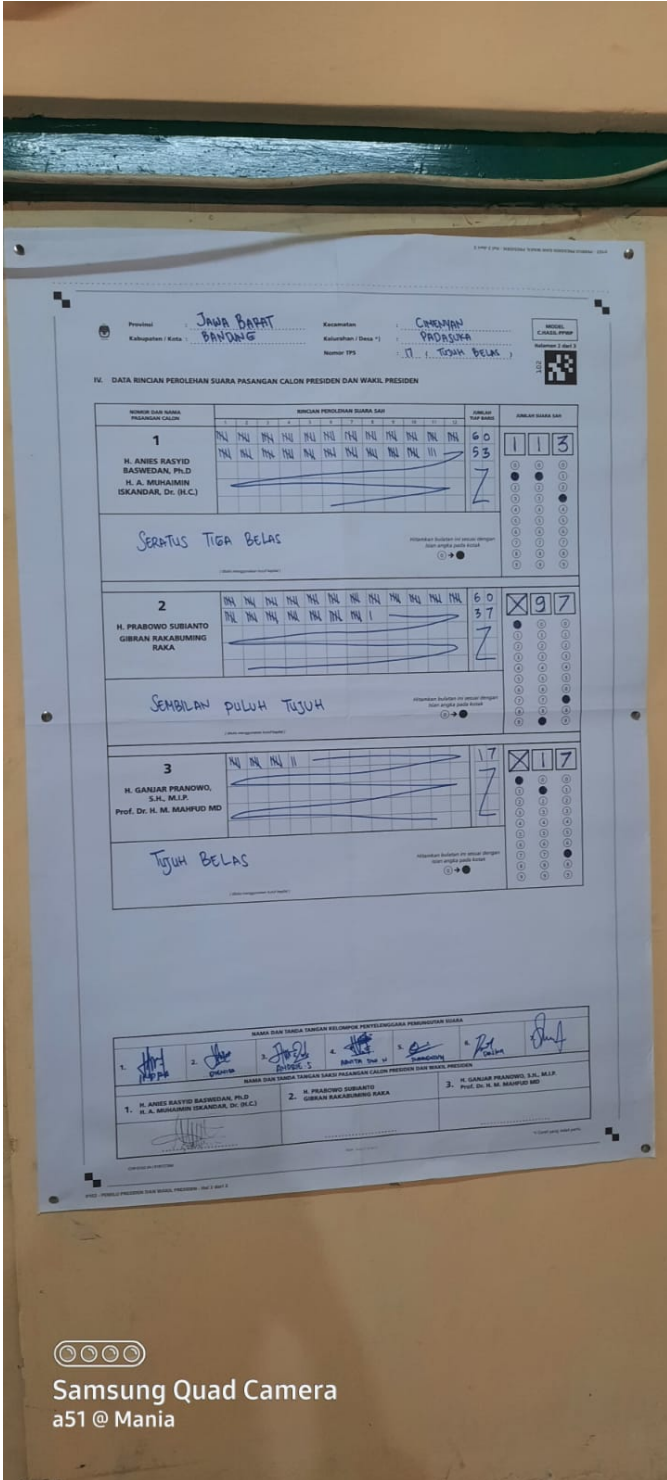 Provinsi : JAWA BARAT
Kabupaten / Kota : BANDUNG
Kecamatan : CIMENYAN
Kelurahan / Desa *) : PADASUKA
Nomor TPS : 17 ( TUJUH BELAS )
MODEL
C.HASIL-PPWP
Halaman 2 dari 3
IV. DATA RINCIAN PEROLEHAN SUARA PASANGAN CALON PRESIDEN DAN WAKIL PRESIDEN
NOMOR DAN NAMA PASANGAN CALON
RINCIAN PEROLEHAN SUARA SAH
JUMLAH TIAP BARIS
JUMLAH SUARA SAH
1 2 3 4 5 6 7 8 9 10 11 12
1
H. ANIES RASYID
BASWEDAN, Ph.D
H. A. MUHAIMIN
ISKANDAR, Dr. (H.C.)
60
53
113
SERATUS TIGA BELAS
Hitamkan bulatan ini sesuai dengan
isian angka pada kotak
2
H. PRABOWO SUBIANTO
GIBRAN RAKABUMING
RAKA
60
37
X97
SEMBILAN PULUH TUJUH
Hitamkan bulatan ini sesuai dengan
isian angka pada kotak
3
H. GANJAR PRANOWO,
S.H., M.I.P.
Prof. Dr. H. M. MAHFUD MD
17
X17
TUJUH BELAS
Hitamkan bulatan ini sesuai dengan
isian angka pada kotak
NAMA DAN TANDA TANGAN KELOMPOK PENYELENGGARA PEMUNGUTAN SUARA
1. 2. 3. ANDRIE S 4. 5. 6.
NAMA DAN TANDA TANGAN SAKSI PASANGAN CALON PRESIDEN DAN WAKIL PRESIDEN
1. H. ANIES RASYID BASWEDAN, Ph.D
H. A. MUHAIMIN ISKANDAR, Dr. (H.C.)
2. H. PRABOWO SUBIANTO
GIBRAN RAKABUMING RAKA
3. H. GANJAR PRANOWO, S.H., M.I.P.
Prof. Dr. H. M. MAHFUD MD
Samsung Quad Camera
a51 @ Mania